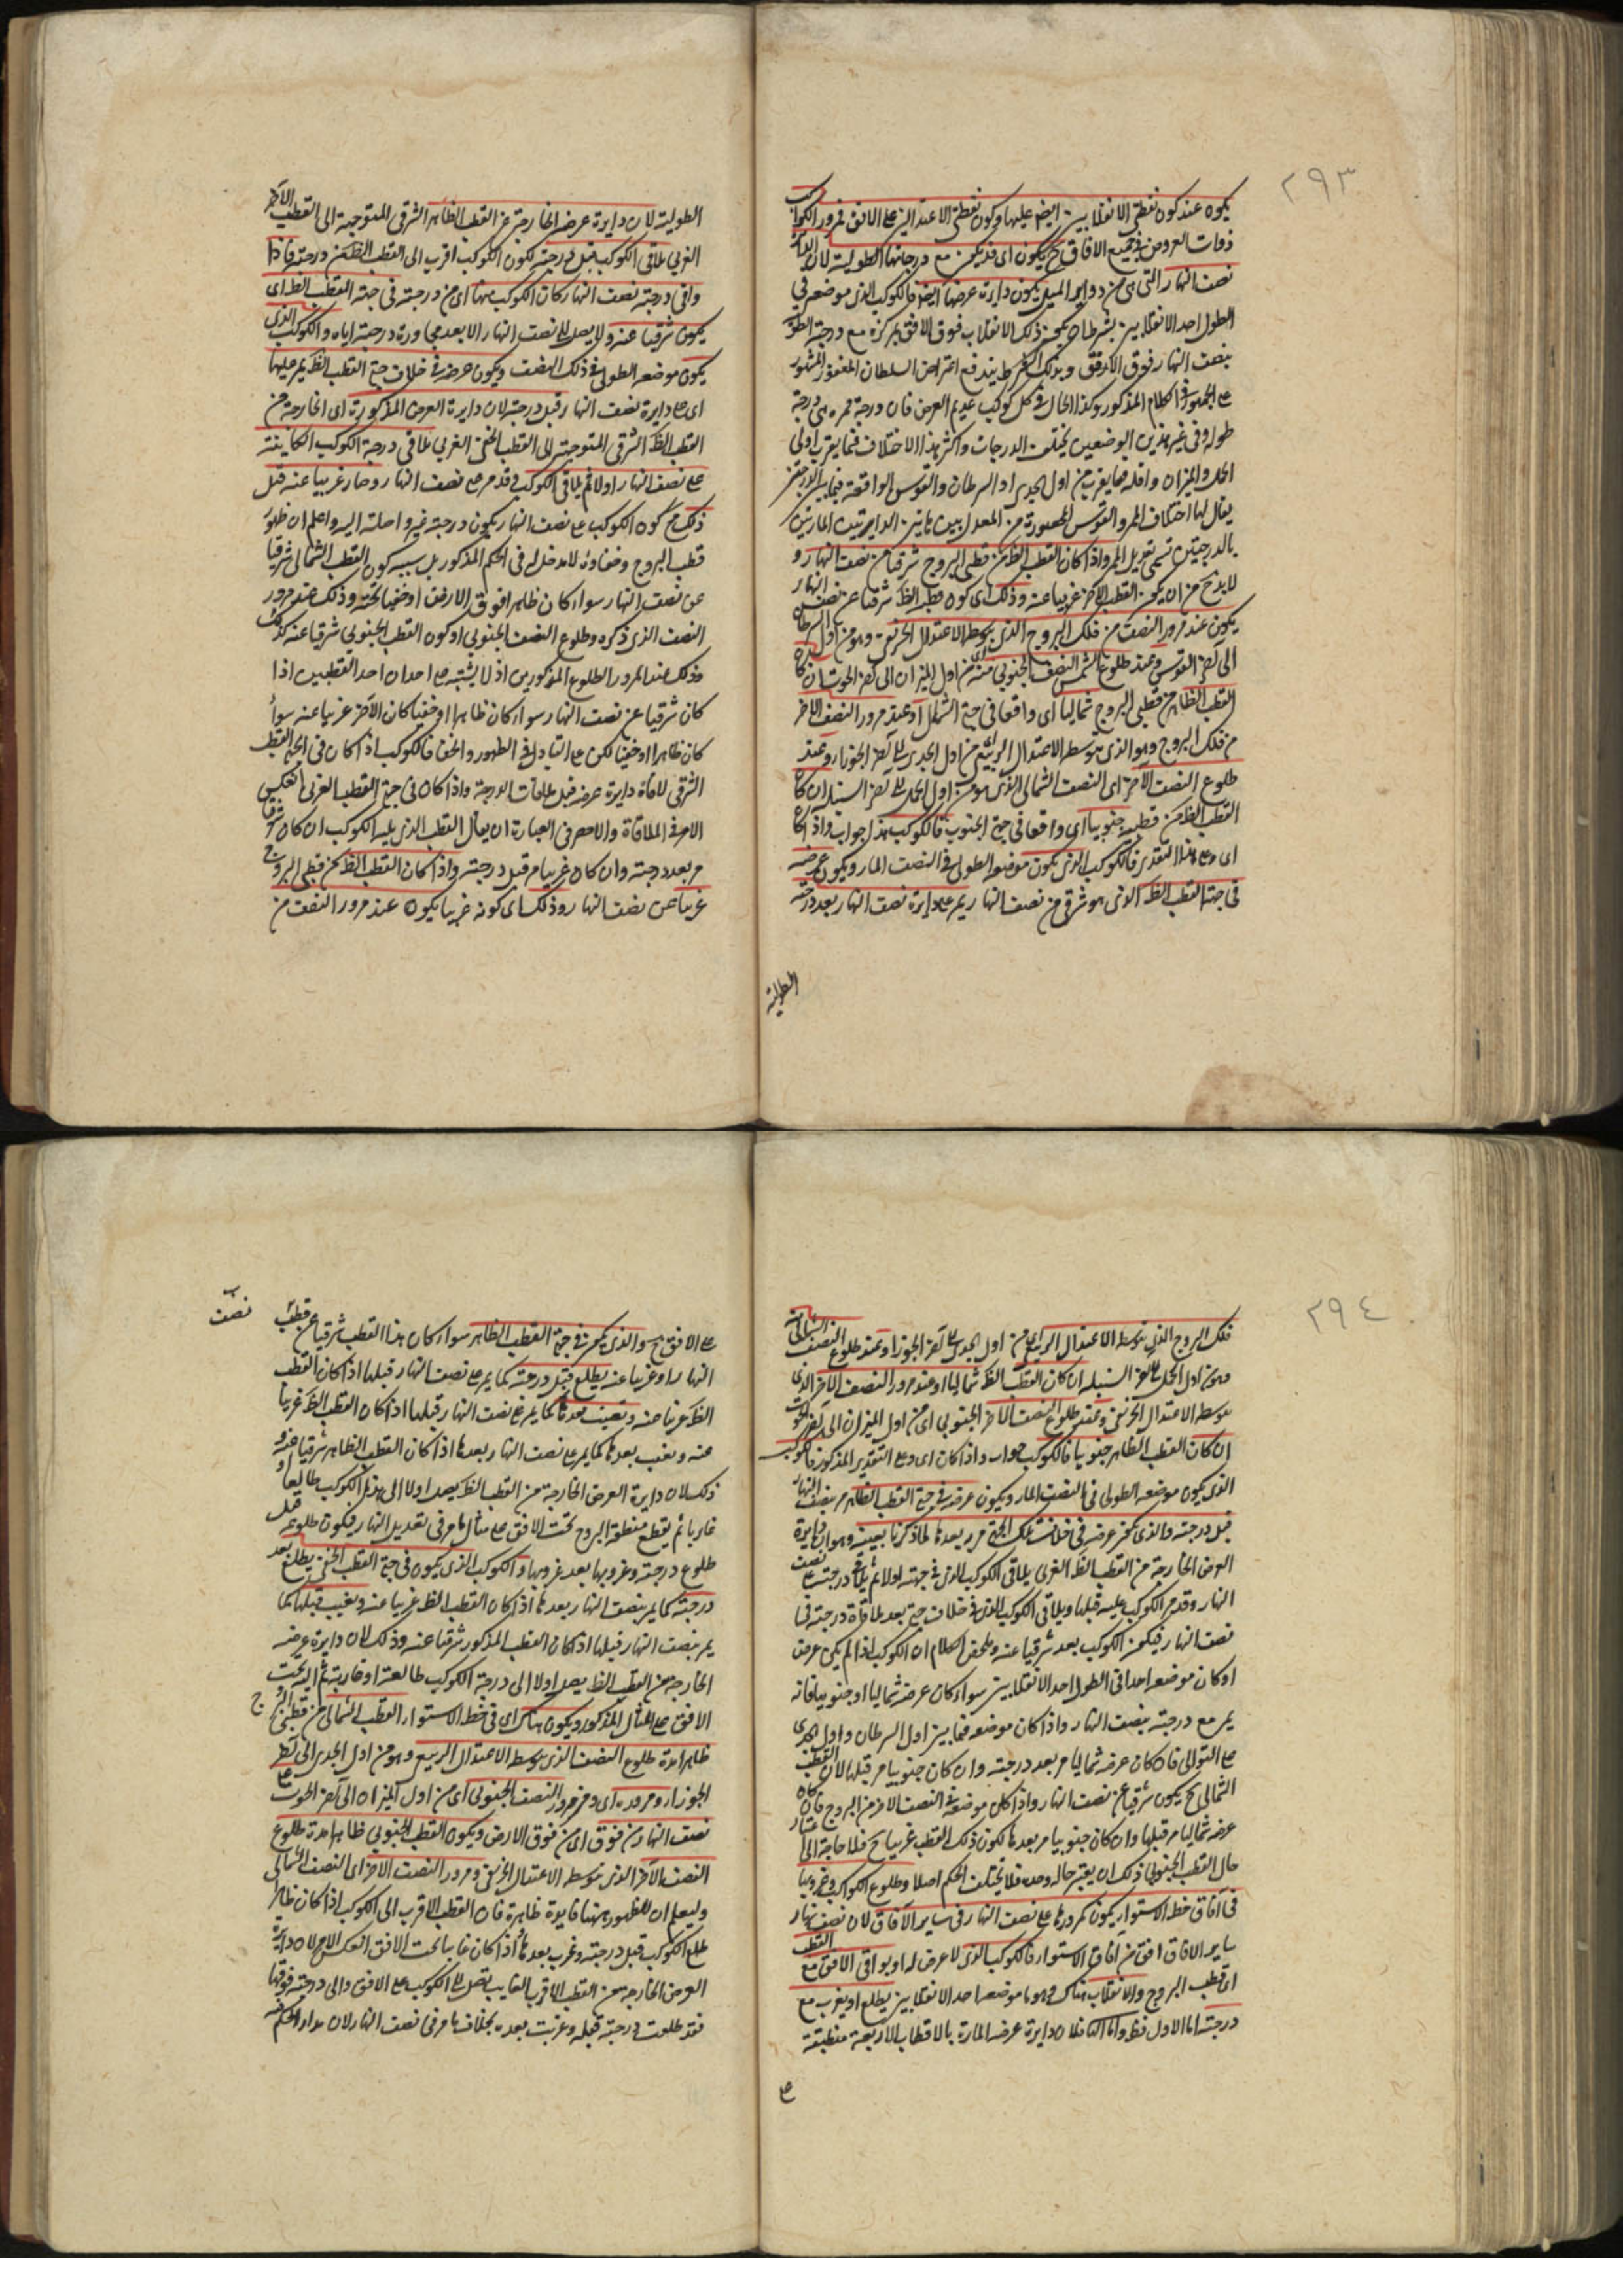 ٢٩٣
يكون عند كون نقطتى الانقلابين ايضا عليها وكون نقطتى الاعتدالين على الافق فمرور الكواكب
ذوات العروض فى جميع الافاق ح يكون اى قد يكون مع درجاتها الطولية لان دائرة
نصف النهار التى هى من دواير الميل يكون دايرة عرضها ايضا فالكوكب الذى موضعه فى
الطول احد الانقلابين بشرط ان يكون ذلك الانقلاب فوق الافق بمركزه مع درجته الطولية
بنصف النهار فوق الافق وبذلك الشرط يندفع اعتراض السلطان المغفور المشهور
على الجمهور فى الكلام المذكور وكذا الحال فى كل كوكب عديم العرض فان درجة ممره هى درجة
طوله وفى غير هذين الوضعين يختلف الدرجات واكثر هذا الاختلاف فيما يقرب اولى
الحمل والميزان واقله فيما يقرب من اول الجدى او السرطان والقوس الواقعة فيما بين الدرجتين
يقال لها اختلاف الممر والقوس المحصورة من المعدل بين هاتين الدايرتين المارتين
بالدرجتين تسمى تعديل الممر واذا كان القطب الظ من قطبى البروج شرقيا من نصف النهار و
لا بد ح من ان يكون القطب الاخر غربيا عنه وذلك اى كون قطب الظ شرقيا عن نصف النهار
يكون عند مرور النصف من فلك البروج الذى يتوسطه الاعتدال الخريفى وهو من اول السرطان
الى آخر القوس وعند طلوع النصف الجنوبى منه اى من اول الميزان الى آخر الحوت ان كان
القطب الظاهر من قطبى البروج شماليا اى واقعا فى جهة الشمال او عند مرور النصف الاخر
من فلك البروج وهو الذى يتوسطه الاعتدال الربيعى من اول الجدى الى آخر الجوزاء وعند
طلوع النصف الآخر اى النصف الشمالى الذى هو من اول الحمل الى آخر السنبلة ان كان
القطب الظ من قطبيه جنوبيا اى واقعا فى جهة الجنوب فالكوكب هذا جواب واذا كان
اى وعلى هذا التقدير فالكوكب الذى يكون موضعه الطولى فى النصف المار ويكون عرضه
فى جهة القطب الظ الذى هو شرقى من نصف النهار يمر على دايرة نصف النهار بعد درجته
الطولية
الطولية لان دايرة عرضه الخارجة عن القطب الظاهر الشرقى المتوجهة الى القطب الآخر
الغربى تلاقى الكوكب قبل درجته لكون الكوكب اقرب الى القطب الظ من درجته فاذا
وافى درجته نصف النهار كان الكوكب منها اى من درجته فى جهة القطب الظ اى
يكون شرقيا عنه ولا يصل الى نصف النهار الا بعد مجاوزة درجته اياه والكوكب الذى
يكون موضعه الطولى فى ذلك النصف ويكون عرضه فى خلاف جهة القطب الظ يمر عليها
اى على دايرة نصف النهار قبل درجته لان دايرة العرض المذكورة اى الخارجة من
القطب الظ الشرقى المتوجهة الى القطب الخفى الغربى تلاقى درجة الكوكب الكاينة
على نصف النهار اولا ثم تلاقى الكوكب وقد مر على نصف النهار وصار غربيا عنه قبل
ذلك مع كون الكوكب على نصف النهار يكون درجته غير واصلة اليه واعلم ان ظهور
قطب البروج وخفاؤه لا مدخل له فى الحكم المذكور بل سببه كون القطب الشمالى شرقيا
عن نصف النهار سواء كان ظاهرا فوق الارض او خفيا تحته وذلك عند مرور
النصف الذى ذكره وطلوع النصف الجنوبى او كون القطب الجنوبى شرقيا عنه كذلك
وذلك عند المرور والطلوع المذكورين اذ لا يشتبه على احد ان احد القطبين اذا
كان شرقيا عن نصف النهار سواء كان ظاهرا او خفيا كان الآخر غربيا عنه سواء
كان ظاهرا او خفيا لكن على التبادل فى الظهور والخفا فالكوكب اذا كان فى جهة القطب
الشرقى لاقاه دايرة عرضه قبل ملاقات الدرجة واذا كان فى جهة القطب الغربى انعكس
الامر فى الملاقاة والاحصر فى العبارة ان يقال القطب الذى يليه الكوكب ان كان شرقيا
مر بعد درجته وان كان غربيا مر قبل درجته واذا كان القطب الظ من قطبى البروج
غربيا عن نصف النهار وذلك اى كونه غربيا يكون عند مرور النصف من
٢٩٤
فلك البروج الذى يتوسطه الاعتدال الربيعى من اول الجدى الى آخر الجوزاء وعند طلوع النصف الشمالى
وهو من اول الحمل الى آخر السنبلة ان كان القطب الظ شماليا او عند مرور النصف الآخر الذى
يتوسطه الاعتدال الخريفى وعند طلوع النصف الآخر الجنوبى اى من اول الميزان الى آخر الحوت
ان كان القطب الظاهر جنوبيا فالكوكب جواب واذا كان اى وعلى التقدير المذكور فالكوكب
الذى يكون موضعه الطولى فى النصف المار ويكون عرضه فى جهة القطب الظاهر مر بنصف النهار
قبل درجته والذى يكون عرضه فى خلاف تلك الجهة مر بعدها لما ذكرنا بعينه وهو ان دايرة
العرض الخارجة من القطب الظ الغربى يلاقى الكوكب الذى فى جهته اولا ثم يلاقى درجته على نصف
النهار وقد مر الكوكب عليه قبلها ويلاقى الكوكب الذى فى خلاف جهته بعد ملاقاة درجته فى
نصف النهار فيكون الكوكب بعد شرقيا عنه وملخص الكلام ان الكوكب اذا لم يكن عرض
او كان موضعه احد فى الطول احد الانقلابين سواء كان عرضه شماليا او جنوبيا فانه
يمر مع درجته بنصف النهار واذا كان موضعه فيما بين اول السرطان واول الجدى
على التوالى فان كان عرضه شماليا مر بعد درجته وان كان جنوبيا مر قبلها لان القطب
الشمالى ح يكون شرقيا عن نصف النهار واذا كان موضعه فى النصف الآخر من البروج فان كان
عرضه شماليا مر قبلها وان كان جنوبيا مر بعدها لكون ذلك القطب غربيا ح فلا حاجة الى اعتبار
حال القطب الجنوبى ذلك ان يعتبر حاله وحده فلا يختلف الحكم اصلا وطلوع الكواكب وغروبها
فى آفاق خط الاستواء يكون كمرورها على نصف النهار فى ساير الآفاق لان نصف نهار
ساير الافاق افق من آفاق الاستواء فالكوكب الذى لا عرض له او يوافى الافق مع القطب
اى قطب البروج والانقلاب هناك وهو ما موضعه احد الانقلابين يطلع او يغرب مع
درجته اما الاول فظ واما الثانى فلان دايرة عرضه المارة بالاقطاب الاربعة منطبقة
على
على الافق ح والذى يكون فى جهة القطب الظاهر سواء كان هذا القطب شرقيا عن نصف
النهار او غربيا عنه يطلع قبل درجته كما يمر على نصف النهار قبلها اذا كان القطب
الظ غربيا عنه وتغيب بعدها كما يمر على نصف النهار قبلها اذا كان القطب الظ غربيا
عنه ويغب بعدها كما يمر على نصف النهار بعدها اذا كان القطب الظاهر شرقيا عنه و
ذلك لان دايرة العرض الخارجة عن القطب الظ يصل اولا الى هذا الكوكب طالعا او
غاربا ثم يقطع منطقة البروج تحت الافق على مثال ما مر فى تعديل النهار فيكون طلوعه قبل
طلوع درجته وغروبها بعد غروبها والكوكب الذى يكون فى جهة القطب الخفى يطلع بعد
درجته كما يمر بنصف النهار بعدها اذا كان القطب الظ غربيا عنه ويغيب قبلها كما
يمر بنصف النهار قبلها اذا كان القطب المذكور شرقيا عنه وذلك لان دايرة عرضه
الخارجة من القطب الظ يصل اولا الى درجة الكوكب طالعة او غاربة ثم اليه تحت
الافق على المثال المذكور ويكون هناك اى فى خط الاستواء القطب الشمالى من قطبى البروج
ظاهرا مدة طلوع النصف الذى يتوسطه الاعتدال الربيعى وهو من اول الجدى الى آخر
الجوزاء ومروره اى ومرور النصف الجنوبى اى من اول الميزان الى آخر الحوت على
نصف النهار من فوق اى من فوق الارض ويكون القطب الجنوبى ظاهرا مدة طلوع
النصف الآخر الذى يتوسطه الاعتدال الخريفى ومرور النصف الآخر اى النصف الشمالى
وليعلم ان للظهور ههنا فايدة ظاهرة فان القطب الاقرب الى الكوكب اذا كان ظاهرا
طلع الكوكب قبل درجته وغرب بعدها واذا كان غايبا تحت الافق انعكس الامر لان دايرة
العرض الخارجة من القطب الاقرب الغايب يصل الى الكوكب على الافق والى درجته فوقها
فقد طلعت درجته قبله وغربت بعده بخلاف ما مر فى نصف النهار لان مدار الحكم